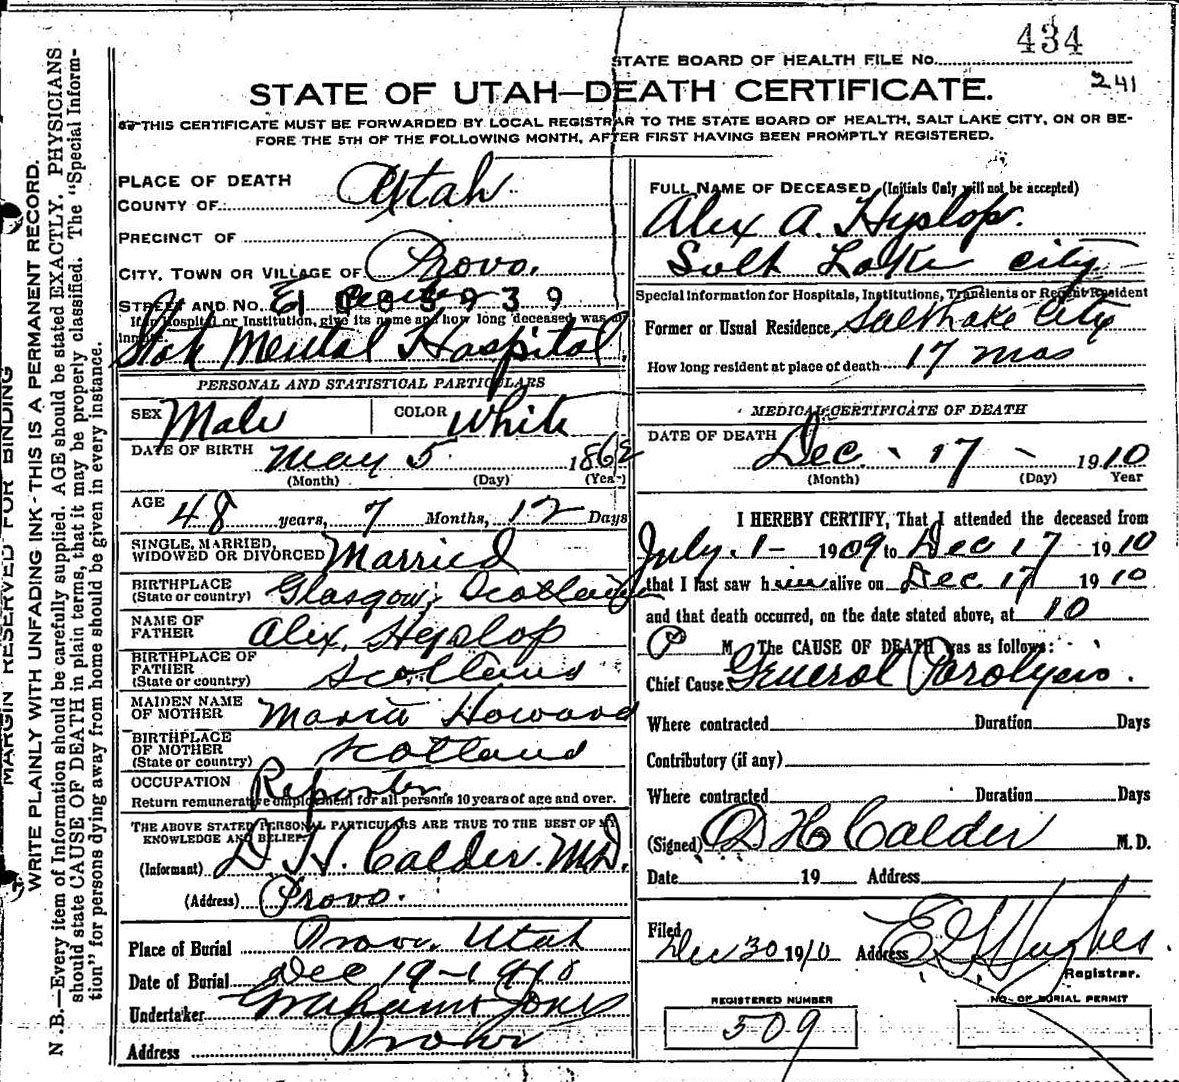 434
STATE BOARD OF HEALTH FILE No.
241
STATE OF UTAH—DEATH CERTIFICATE.
THIS CERTIFICATE MUST BE FORWARDED BY LOCAL REGISTRAR TO THE STATE BOARD OF HEALTH, SALT LAKE CITY, ON OR BE-
FORE THE 5TH OF THE FOLLOWING MONTH, AFTER FIRST HAVING BEEN PROMPTLY REGISTERED.
MARGIN RESERVED FOR BINDING
WRITE PLAINLY WITH UNFADING INK - THIS IS A PERMANENT RECORD.
N.B.—Every item of Information should be carefully supplied. AGE should be stated EXACTLY. PHYSICIANS
should state CAUSE OF DEATH in plain terms, that it may be properly classified. The "Special Inform-
tion" for persons dying away from home should be given in every instance.
PLACE OF DEATH
COUNTY OF Utah
PRECINCT OF
CITY, TOWN OR VILLAGE OF Provo.
STREET AND NO. E Center
If in Hospital or Institution, give its name and how long deceased was an
inmate.
Mental Hospital
PERSONAL AND STATISTICAL PARTICULARS
SEX Male COLOR White
DATE OF BIRTH May 5 1862
(Month) (Day) (Year)
AGE 48 years, 7 Months, 12 Days
SINGLE, MARRIED,
WIDOWED OR DIVORCED Married
BIRTHPLACE
(State or country) Glasgow, Scotland
NAME OF
FATHER Alix. Hyslop
BIRTHPLACE OF
FATHER
(State or country) Scotland
MAIDEN NAME
OF MOTHER Maria Howard
BIRTHPLACE
OF MOTHER
(State or country) Scotland
OCCUPATION Reporter
Return remunerative employment for all persons 10 years of age and over.
THE ABOVE STATED PERSONAL PARTICULARS ARE TRUE TO THE BEST OF MY
KNOWLEDGE AND BELIEF.
(Informant) D. H. Calder. M.D.
(Address) Provo.
Place of Burial Provo. Utah
Date of Burial Dec 19-1910
Undertaker Graham Jones
Address Provo
FULL NAME OF DECEASED (Initials Only will not be accepted)
Alex A. Hyslop.
Salt Lake City
Special Information for Hospitals, Institutions, Transients or Recent Resident
Former or Usual Residence, Salt Lake City
How long resident at place of death 17 mos
MEDICAL CERTIFICATE OF DEATH
DATE OF DEATH Dec. - 17 - 1910
(Month) (Day) Year
I HEREBY CERTIFY, That I attended the deceased from
July. 1- 1909 to Dec 17 1910
that I last saw him alive on Dec 17 1910
and that death occurred, on the date stated above, at 10
P M. The CAUSE OF DEATH was as follows:
Chief Cause General Paralysis.
Where contracted Duration Days
Contributory (if any)
Where contracted Duration Days
(Signed) D H Calder M.D.
Date 19 Address
Filed
Dec 30 1910 Address E G Hughes.
Registrar.
REGISTERED NUMBER
509
NO. OF BURIAL PERMIT